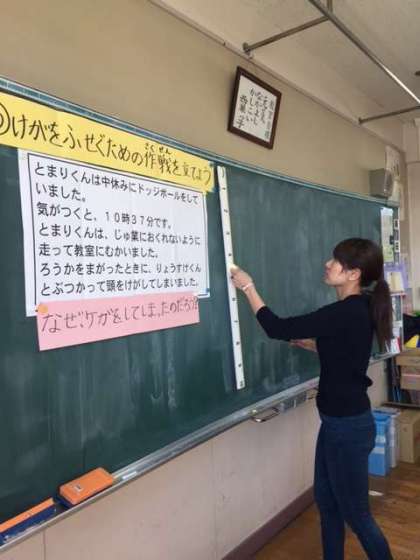 ◎けがをふせぐための作戦を立てよう
さくせん
とまりくんは中休みにドッジボールをして
いました。
気がつくと、10時37分です。
とまりくんは、じゅ業におくれないように
走って教室にむかいました。
ろうかをまがったときに、りょうすけくん
とぶつかって頭をけがしてしまいました。
なぜ、ケガをしてしまったのだろう?